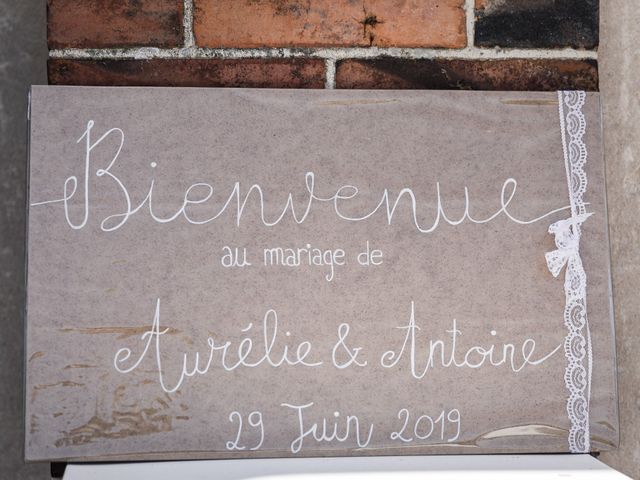 Bienvenue
au mariage de
Aurélie & Antoine
29 Juin 2019